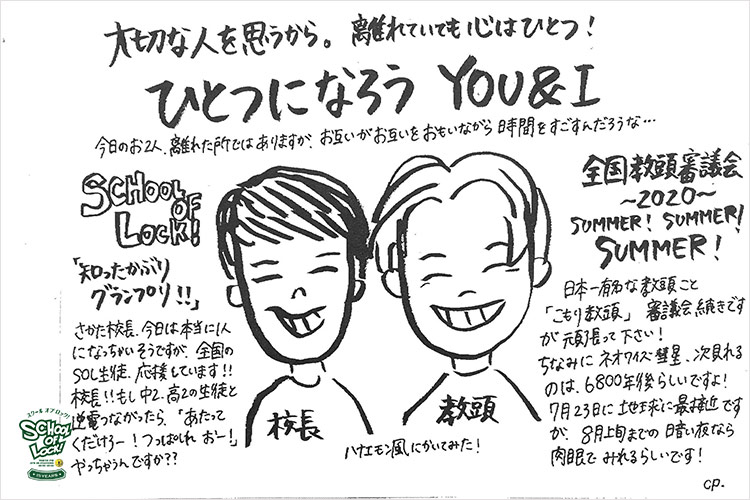 大切な人を思うから。離れていても心はひとつ!
ひとつになろう YOU&I
今日のお2人、離れた所ではありますが、お互いがお互いをおもいながら時間をすごすんだろうな…
SCHOOL
OF
LOCK!
「知ったかぶり
グランプリ!!」
さかた校長、今日は本当に1人
になっちゃいそうですが、全国の
SOL生徒、応援しています!!
校長!!もし中2、高2の生徒と
逆電つながったら、「あたって
くだけろー!つっぱしれ おー!」
やっちゃうんですか??
全国教頭審議会
~2020~
SUMMER! SUMMER!
SUMMER!
日本一有名な教頭こと
「こもり教頭」 審議会続きです
が頑張って下さい!
ちなみにネオワイズ彗星、次見れる
のは、6800年後らしいですよ!
7月23日に地球に最接近です
が、8月上旬までの暗い夜なら
肉眼でみれるらしいです!
校長
教頭
ハナエモン風にかいてみた!
スクールオブロック!
SCHOOL
OF
LOCK!
15YEARS
CP.